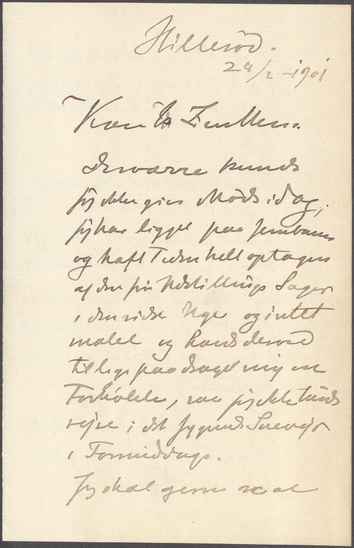 Hillerød.
24/2 - 1901
Kære Hr Zeuthen.
Desværre kunde
jeg ikke give Møde i dag,
jeg har ligget paa Jernbanen
og haft Tiden helt optagen
af den fri Udstillings Sager
i den sidste Uge og intet
malet og havde derved
tillige paadraget mig en
Forkølelse, saa jeg ikke turde
rejse i det fygende Snevejr
i Formiddags.
Jeg skal gerne